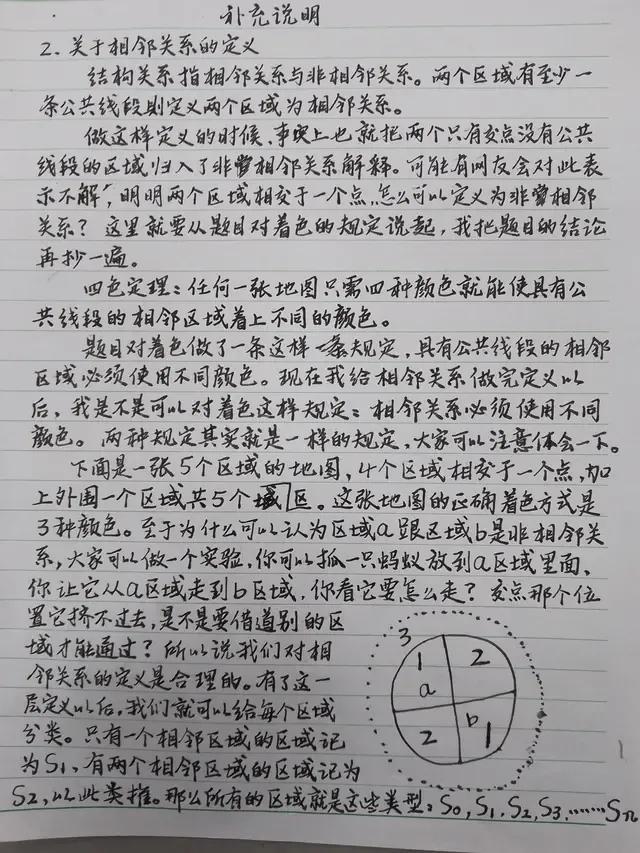 补充说明
2、关于相邻关系的定义
结构关系指相邻关系与非相邻关系。两个区域有至少一
条公共线段则定义两个区域为相邻关系。
做这样定义的时候,事实上也就把两个只有交点没有公共
线段的区域归入了非相邻关系解释。可能有网友会对此表
示不解,明明两个区域相交于一个点,怎么可以定义为非相邻
关系?这里就要从题目对着色的规定说起,我把题目的结论
再抄一遍。
四色定理:任何一张地图只需四种颜色就能使具有公
共线段的相邻区域着上不同的颜色。
题目对着色做了一条这样一条规定,具有公共线段的相邻
区域必须使用不同颜色。现在我给相邻关系做完定义以
后,我是不是可以对着色这样规定:相邻关系必须使用不同
颜色。两种规定其实就是一样的规定,大家可以注意体会一下。
下面是一张5个区域的地图,4个区域相交于一个点,加
上外围一个区域共5个区。这张地图的正确着色方式是
3种颜色。至于为什么可以认为区域a跟区域b是非相邻关
系,大家可以做一个实验,你可以抓一只蚂蚁放到a区域里面,
你让它从a区域走到b区域,你看它要怎么走?交点那个位
置它挤不过去,是不是要借道别的区
域才能通过?所以说我们对相
邻关系的定义是合理的。有了这一
层定义以后,我们就可以给每个区域
分类。只有一个相邻区域的区域记
为S1,有两个相邻区域的区域记为
S2,以此类推。那么所有的区域就是这些类型:S0,S1,S2,S3,……Sn
3
1 2
a
b
2 1
1